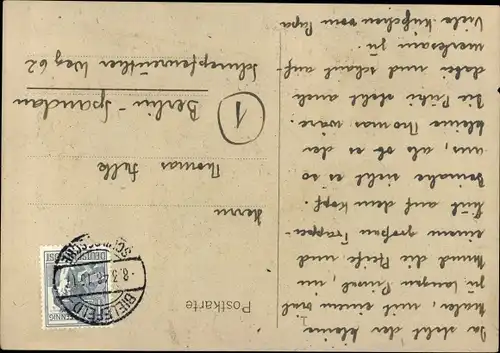 Da steht der kleine
Maler, mit einem viel
zu langen Pinsel, im
Mund die Pfeife und
einem großen Trapper-
hut auf dem Kopf.
Beinahe sieht es so
aus, als ob es der
kleine Thomas wäre.
Die steht auch
dabei und schaut auf-
merksam zu.
Viele Küßchen vom Papa
Postkarte
BIELEFELD
-8.3.48
DEUTSCHE POST
PFENNIG
Herrn
Thomas
1 Berlin-Spandau
Schnepfenreuther Weg 62